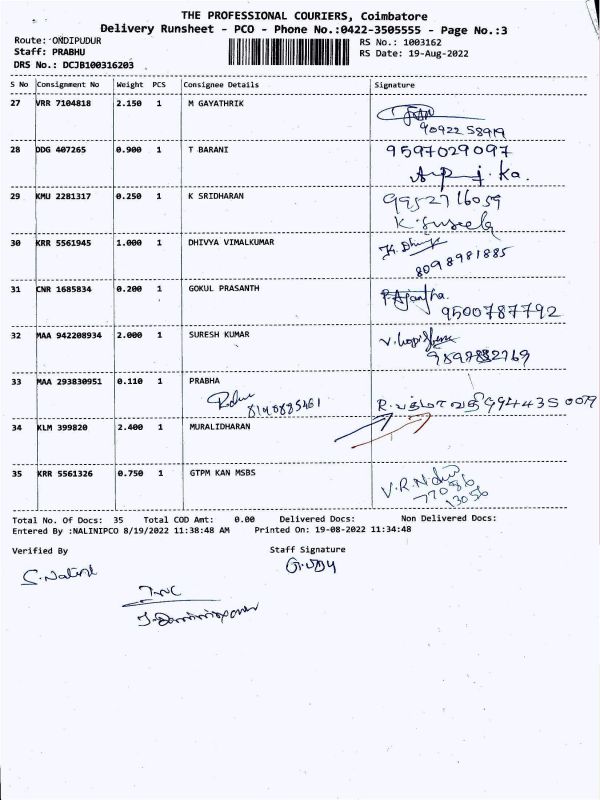 THE PROFESSIONAL COURIERS, Coimbatore
Delivery Runsheet - PCO - Phone No.:0422-3505555 - Page No.:3
Route: ONDIPUDUR
RS No.: 1003162
Staff: PRABHU
RS Date: 19-Aug-2022
DRS No.: DCJB100316203
S No Consignment No Weight PCS Consignee Details Signature
27 VRR 7104818 2.150 1 M GAYATHRIK
90922 58919
28 DDG 407265 0.900 1 T BARANI 9597029097
29 KMU 2281317 0.250 1 K SRIDHARAN 9952716059
K. Suseela
30 KRR 5561945 1.000 1 DHIVYA VIMALKUMAR
8098981885
31 CNR 1685834 0.200 1 GOKUL PRASANTH P. Ajantha.
9500787792
32 MAA 942208934 2.000 1 SURESH KUMAR
33 MAA 293830951 0.110 1 PRABHA
R. பத்மாவதி 9944350079
34 KLM 399820 2.400 1 MURALIDHARAN
35 KRR 5561326 0.750 1 GTPM KAN MSBS
77086
13056
Total No. Of Docs: 35 Total COD Amt: 0.00 Delivered Docs: Non Delivered Docs:
Entered By :NALINIPCO 8/19/2022 11:38:48 AM Printed On: 19-08-2022 11:34:48
Verified By Staff Signature
S. Nalini